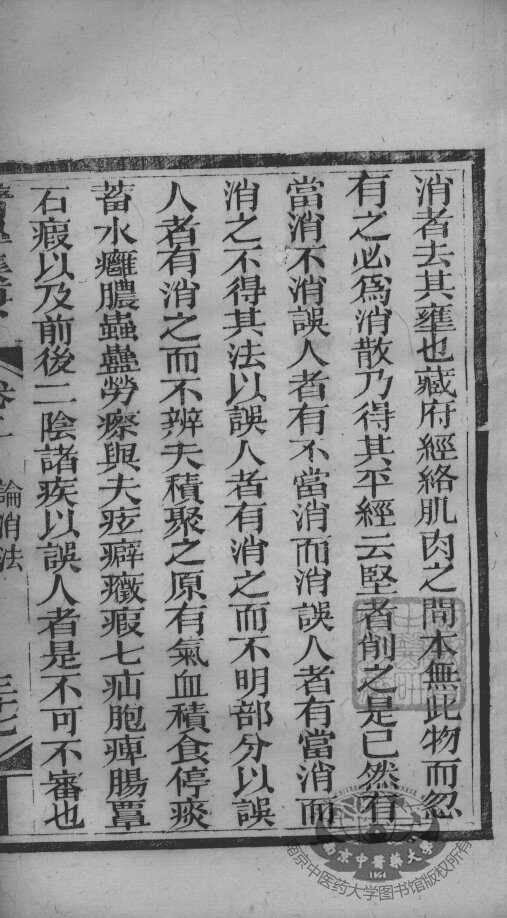 消者去其壅也藏府經絡肌肉之間本無此物而忽
有之必爲消散乃得其平經云堅者削之是已然有
當消不消誤人者有不當消而消誤人者有當消而
消之不得其法以誤人者有消之而不明部分以誤
人者有消之而不辨夫積聚之原有氣血積食停痰
蓄水癰膿蟲蠱勞瘵與夫痃癖癥瘕七疝胞痺腸覃
石瘕以及前後二陰諸疾以誤人者是不可不審也
論消法
南京中醫藥大學
1954
南京中医药大学图书馆版权所有